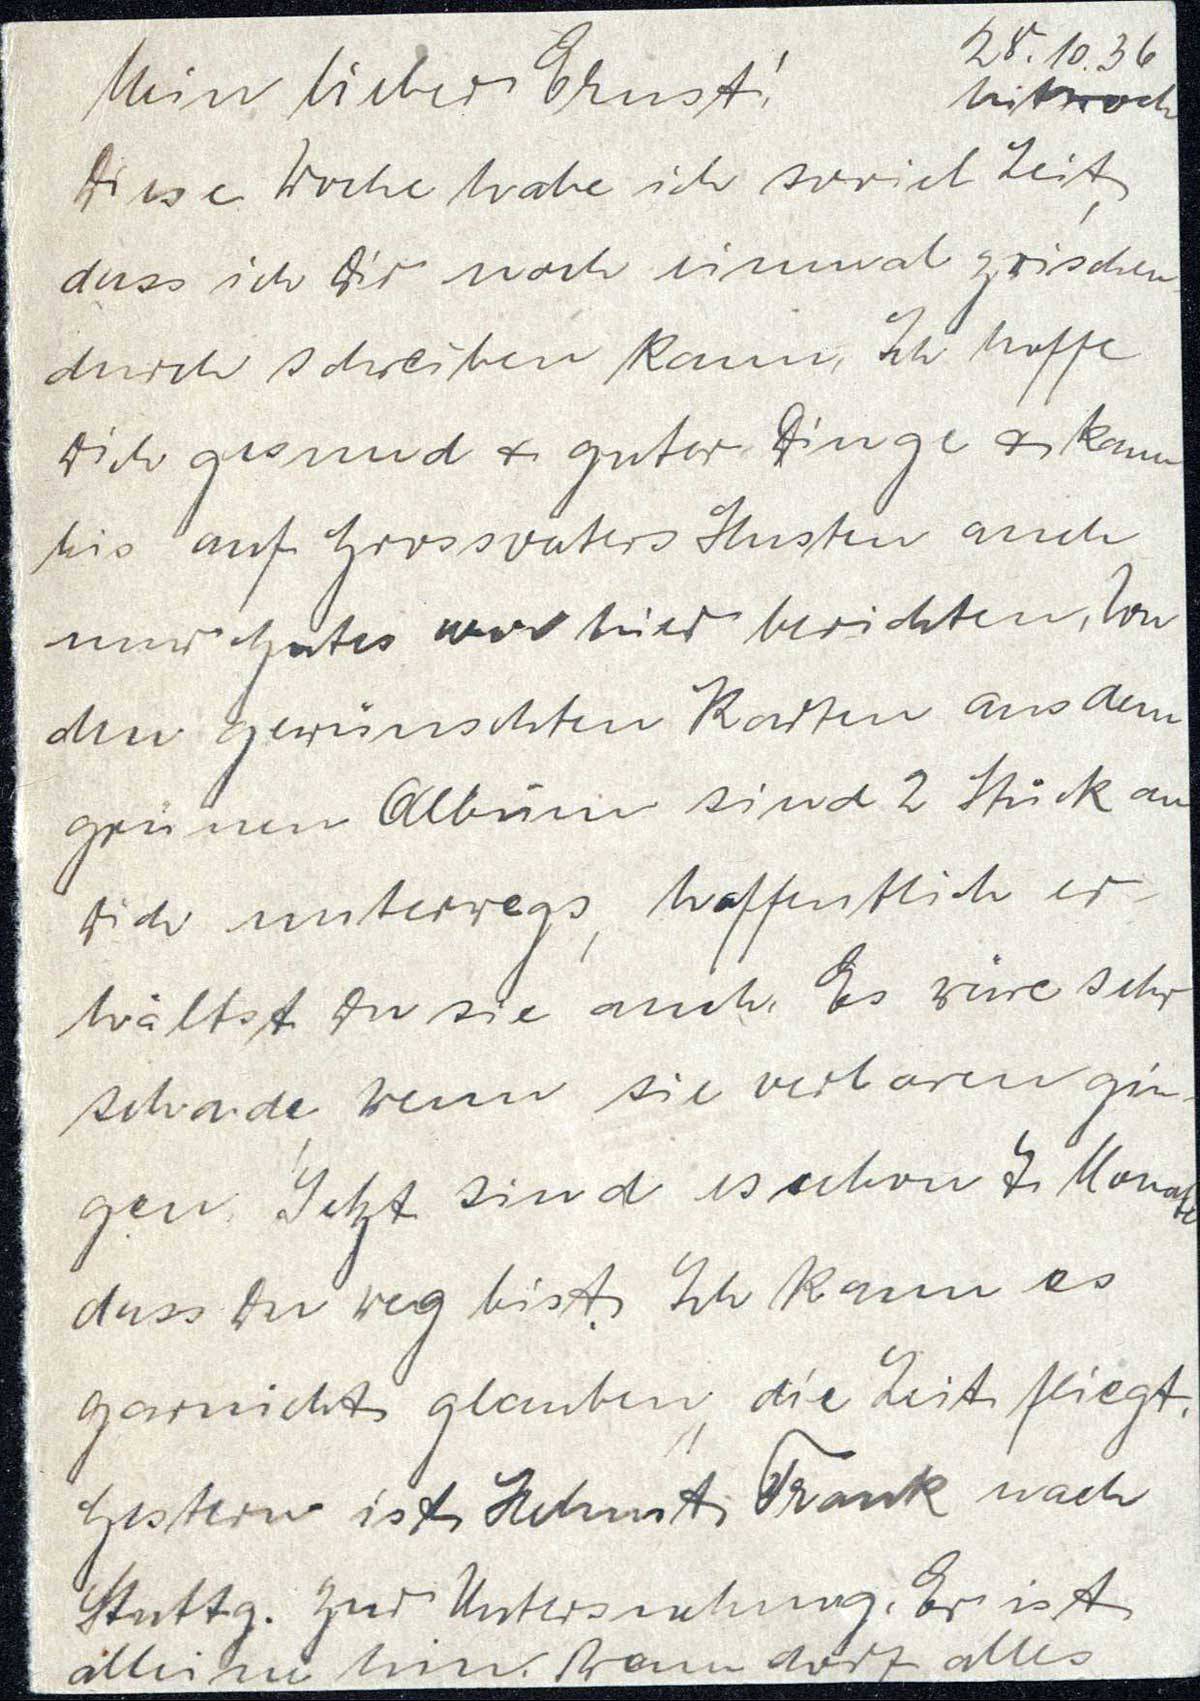 28.10.36
Mittwoch
Mein lieber Ernst!
Diese Woche habe ich soviel Zeit,
dass ich Dir noch einmal zwischen-
durch schreiben kann. Ich hoffe
Dich gesund & guter Dinge & kann
bis auf Grossvaters Husten auch
nur Gutes von hier berichten. Von
den gewünschten Karten aus dem
grünen Album sind 2 Stück an
Dich unterwegs, hoffentlich er-
hältst Du sie auch. Es wäre sehr
schade, wenn sie verloren gin-
gen. Jetzt sind es schon Monate
dass Du weg bist. Ich kann es
garnicht glauben, die Zeit fliegt.
Gestern ist Helmut Frank nach
Stuttg. zur Untersuchung. Er ist
alleine hin. Wenn dort alles